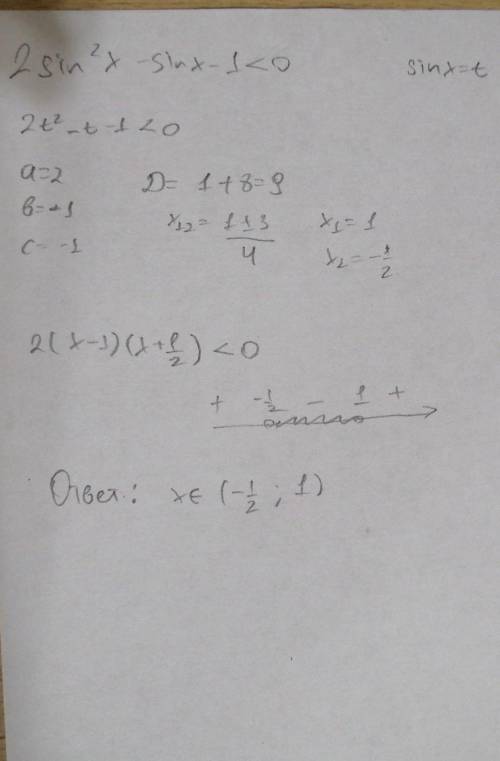 2sin²x - sinx - 1 < 0 sinx = t
2t² - t - 1 < 0
a = 2 D = 1 + 8 = 9
b = -1 x₁₂ = (1 ± 3)/4 x₁ = 1
c = -1 x₂ = -1/2
2(x - 1)(x + 1/2) < 0
+ -1/2 - 1 +
Ответ: x ∈ (-1/2 ; 1)